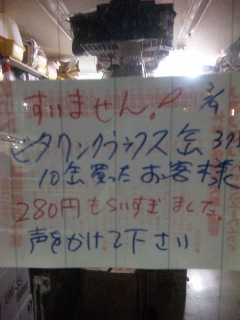 すいません! 3/4
ビタワンクラックス缶 375
10缶買ったお客様
280円もらいすぎました。
声をかけて下さい